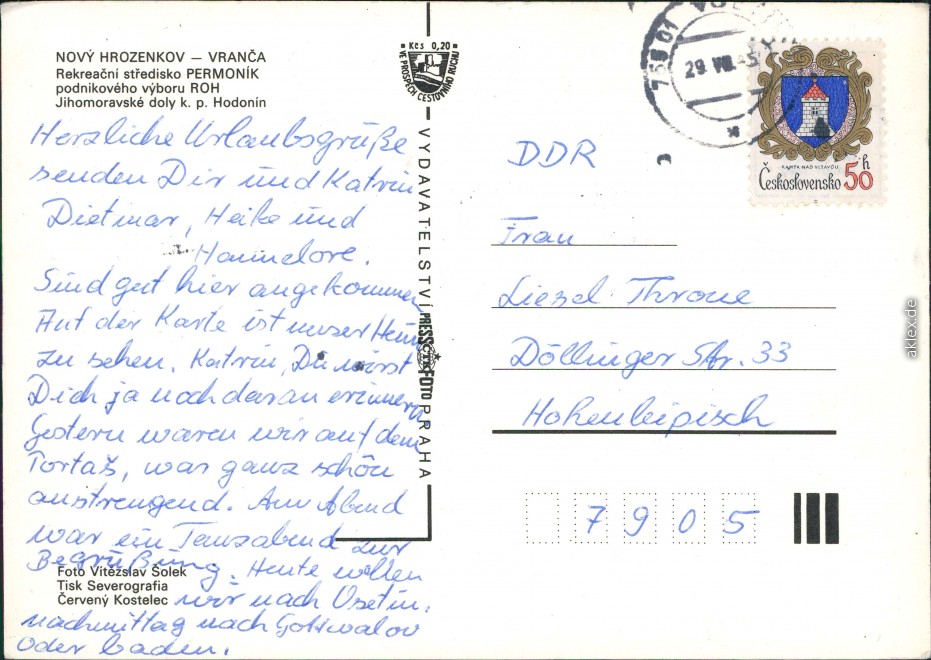 NOVÝ HROZENKOV — VRANČA
Rekreační středisko PERMONÍK
podnikového výboru ROH
Jihomoravské doly k. p. Hodonín
Herzliche Urlaubsgrüße
senden Dir und Katrin
Dietmar, Heike und
Hannelore.
Sind gut hier angekommen
Auf der Karte ist unser Heim
zu sehen. Katrin, Du wirst
Dich ja noch daran erinnern
Gestern waren wir auf dem
war ganz schön
anstrengend. Am Abend
war ein Tanzabend zur
Begrüßung. Heute wollen
wir nach Vsetin,
nachmittag nach Gottwalov
oder baden.
Foto Vítězslav Šolek
Tisk Severografia
Červený Kostelec
Kčs 0,20
VE PROSPĚCH CESTOVNÍHO RUCHU
VYDAVATELSTVÍ PRESSFOTO PRAHA
ČTK
756 01
29. VII.
KAMÝK NAD VLTAVOU
Československo 50h
DDR
Frau
Liesel Throne
Döllinger Str. 33
Hohenleipisch
7905
aklex.de